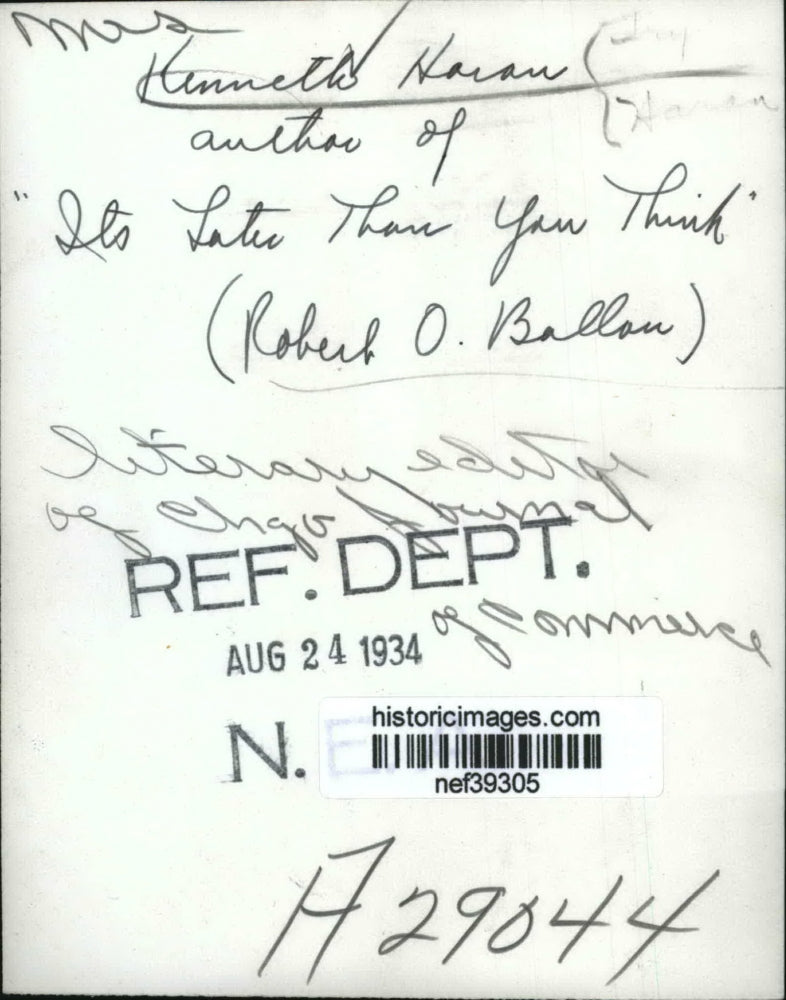 Mrs
Kenneth Horan
author of
"Its Later Than You Think"
(Robert O. Ballou)
literary editor
of Chgo Journal
REF. DEPT.
of Commerce
AUG 24 1934
N. E. A.
historicimages.com
nef39305
A 29044